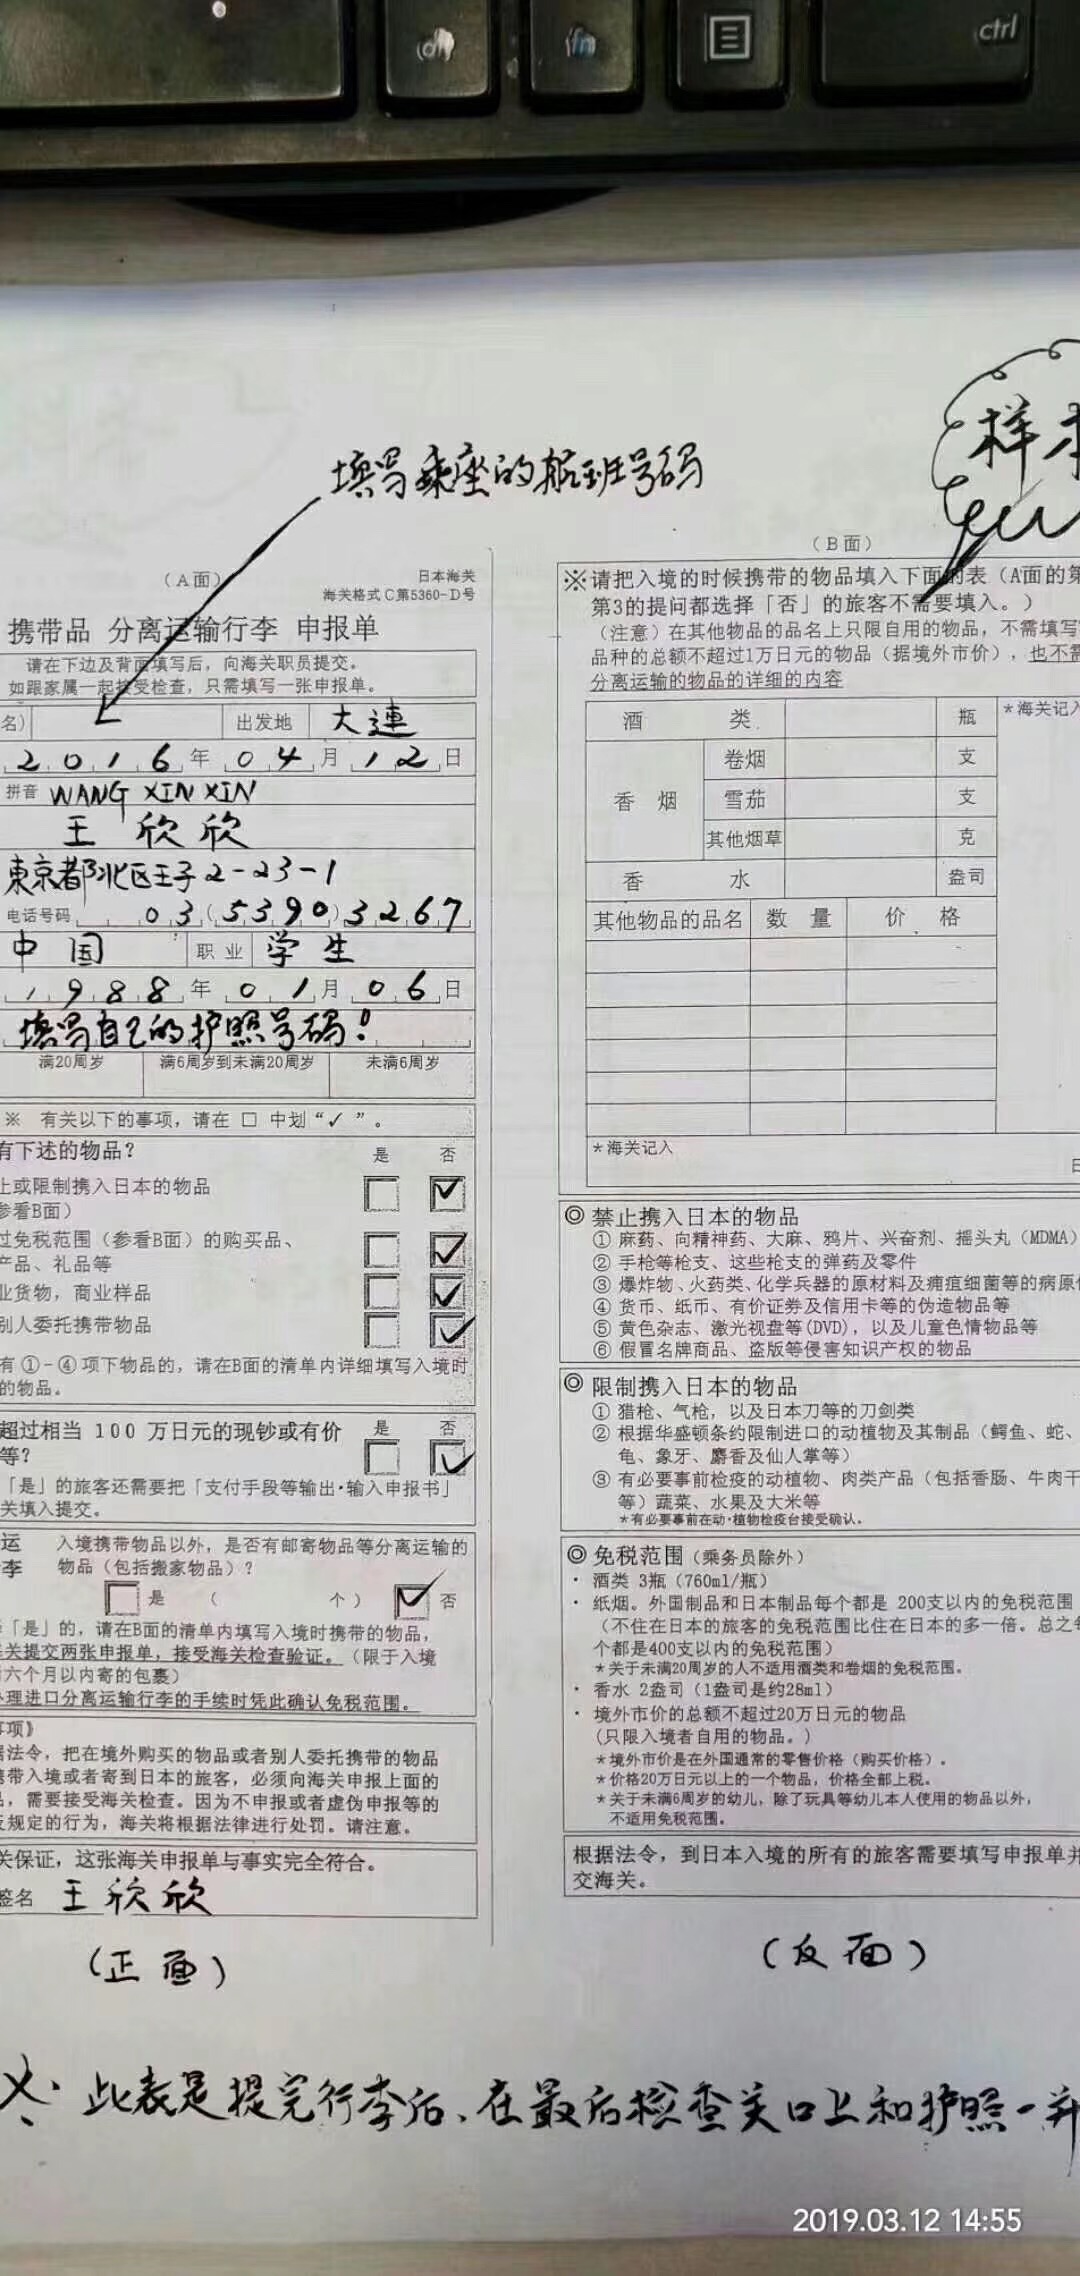 alt
fn
ctrl
样本
填写乘座的航班号码
（A面）
日本海关
海关格式C第5360-D号
携带品 分离运输行李 申报单
请在下边及背面填写后，向海关职员提交。
如跟家属一起接受检查，只需填写一张申报单。
名） 出发地 大連
2016年04月12日
拼音 WANG XIN XIN
王 欣欣
東京都北区王子2-23-1
电话号码 03(5390)3267
中国 职业 学生
1988年01月06日
填写自己的护照号码！
满20周岁 满6周岁到未满20周岁 未满6周岁
※ 有关以下的事项，请在 □ 中划“✓”。
有下述的物品？ 是 否
止或限制携入日本的物品
参看B面）
过免税范围（参看B面）的购买品、
产品、礼品等
业货物，商业样品
别人委托携带物品
有①-④项下物品的，请在B面的清单内详细填写入境时
的物品。
超过相当 100 万日元的现钞或有价 是 否
等？
「是」的旅客还需要把「支付手段等输出·输入申报书」
关填入提交。
运 入境携带物品以外，是否有邮寄物品等分离运输的
李 物品（包括搬家物品）？
是 （ 个） 否
「是」的，请在B面的清单内填写入境时携带的物品，
关提交两张申报单，接受海关检查验证。（限于入境
六个月以内寄的包裹）
办理进口分离运输行李的手续时凭此确认免税范围。
事项》
据法令，把在境外购买的物品或者别人委托携带的物品
携带入境或者寄到日本的旅客，必须向海关申报上面的
品，需要接受海关检查。因为不申报或者虚伪申报等的
反规定的行为，海关将根据法律进行处罚。请注意。
关保证，这张海关申报单与事实完全符合。
签名 王欣欣
（正面）
（B面）
※请把入境的时候携带的物品填入下面的表（A面的第
第3的提问都选择「否」的旅客不需要填入。）
（注意）在其他物品的品名上只限自用的物品，不需填写
品种的总额不超过1万日元的物品（据境外市价），也不需
分离运输的物品的详细的内容
酒 类 瓶 *海关记入
香 烟 卷烟 支
雪茄 支
其他烟草 克
香 水 盎司
其他物品的品名 数 量 价 格
*海关记入
日
◎ 禁止携入日本的物品
① 麻药、向精神药、大麻、鸦片、兴奋剂、摇头丸（MDMA）
② 手枪等枪支、这些枪支的弹药及零件
③ 爆炸物、火药类、化学兵器的原材料及痈疽细菌等的病原体
④ 货币、纸币、有价证券及信用卡等的伪造物品等
⑤ 黄色杂志、激光视盘等(DVD)，以及儿童色情物品等
⑥ 假冒名牌商品、盗版等侵害知识产权的物品
◎ 限制携入日本的物品
① 猎枪、气枪，以及日本刀等的刀剑类
② 根据华盛顿条约限制进口的动植物及其制品（鳄鱼、蛇、
龟、象牙、麝香及仙人掌等）
③ 有必要事前检疫的动植物、肉类产品（包括香肠、牛肉干
等）蔬菜、水果及大米等
*有必要事前在动·植物检疫台接受确认。
◎ 免税范围（乘务员除外）
· 酒类 3瓶（760ml/瓶）
· 纸烟。外国制品和日本制品每个都是 200支以内的免税范围
（不住在日本的旅客的免税范围比住在日本的多一倍。总之每
个都是400支以内的免税范围）
*关于未满20周岁的人不适用酒类和卷烟的免税范围。
· 香水 2盎司（1盎司是约28ml）
· 境外市价的总额不超过20万日元的物品
（只限入境者自用的物品。）
*境外市价是在外国通常的零售价格（购买价格）。
*价格20万日元以上的一个物品，价格全部上税。
*关于未满6周岁的幼儿，除了玩具等幼儿本人使用的物品以外，
不适用免税范围。
根据法令，到日本入境的所有的旅客需要填写申报单并
交海关。
（反面）
此表是提完行李后、在最后检查关口上和护照一并
2019.03.12 14:55